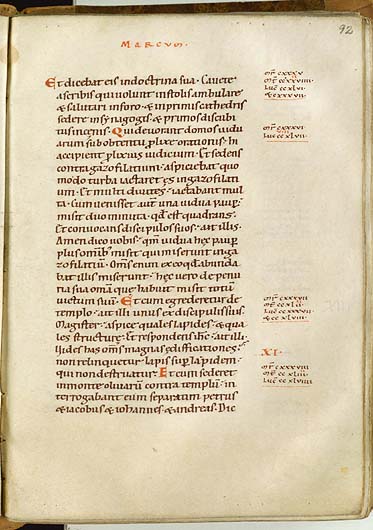 92
MARCUM
Et dicebat eis indoctrina sua. Cavete
ascribis qui volunt instolis ambulare
& salutari inforo. & inprimis cathedris
sedere insynagogis & primos discubi
tus incenis. Qui devorant domos vidu
arum subobtentu plixe orationis. In
accipient plixius iudicium. Et sedens
contra gazofilatium. aspiciebat quo
modo turba iactaret es ingazofilati
um. Et multi divites iactabant mul
ta. Cum venisset aut una vidua paup
misit duo minuta. qd est quadrans.
Et convocans discipulos suos. ait illis.
Amen dico vobis. qm vidua hec paup
plus omib misit qui miserunt inga
zofilatiu. Oms enim ex eo qd abunda
bat illis miserunt. hec vero de penu
ria sua oma que habuit misit totu
victum suu. Et cum egrederetur de
templo. ait illi unus ex discipulis suis.
Magister. aspice quales lapides. & qua
les structure. Et respondens ihc. ait illi.
Vides has oms magnas edificationes.
non relinquetur lapis sup lapidem.
qui non destruatur. Et cum sederet
inmonte olivaru contra templu. in
terrogabant eum separatim petrus
& iacobus & iohannes & andreas. Dic
mr cxxxv
mt ccxxviiii
luc ccxli
& cxxxvii
mr cxxxvi
luc ccxlvii
mr cxxxvii
mt ccxlii
luc ccxlviii
XI
mr cxxxviii
mt ccxliii
luc ccxlviiii